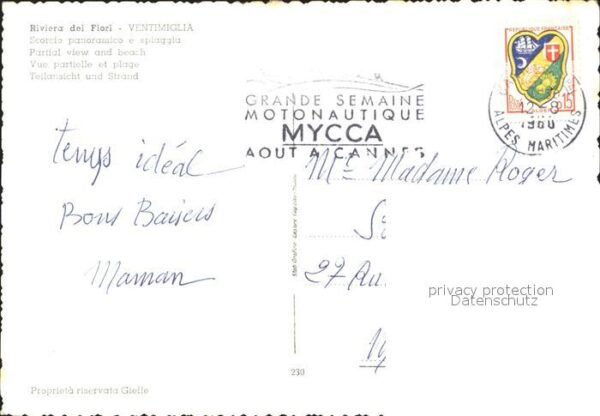 Riviera dei Fiori - VENTIMIGLIA
Scorcio panoramico e spiaggia
Partial view and beach
Vue partielle et plage
Teilansicht und Strand
GRANDE SEMAINE
MOTONAUTIQUE
MYCCA
AOUT A CANNES
REPUBLIQUE FRANÇAISE
15
12-8
1960
ALPES MARITIMES
temps idéal
Bons Baisers
Maman
Mr Madame Roger
27 Au
privacy protection
Datenschutz
230
Proprietà riservata Gielle